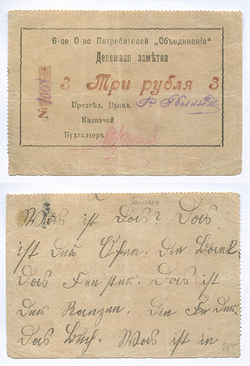 6-ое О-во Потребителей „Объединеніе"
Денежная замѣтка
3 Три рубля 3
№
Предсѣд. Правл.
Казначей
Бухгалтеръ
Was ist das? Das
ist der Ofen. Die Bank
das Fenster. Das ist
der Ranzen, die
das Buch. Was ist in